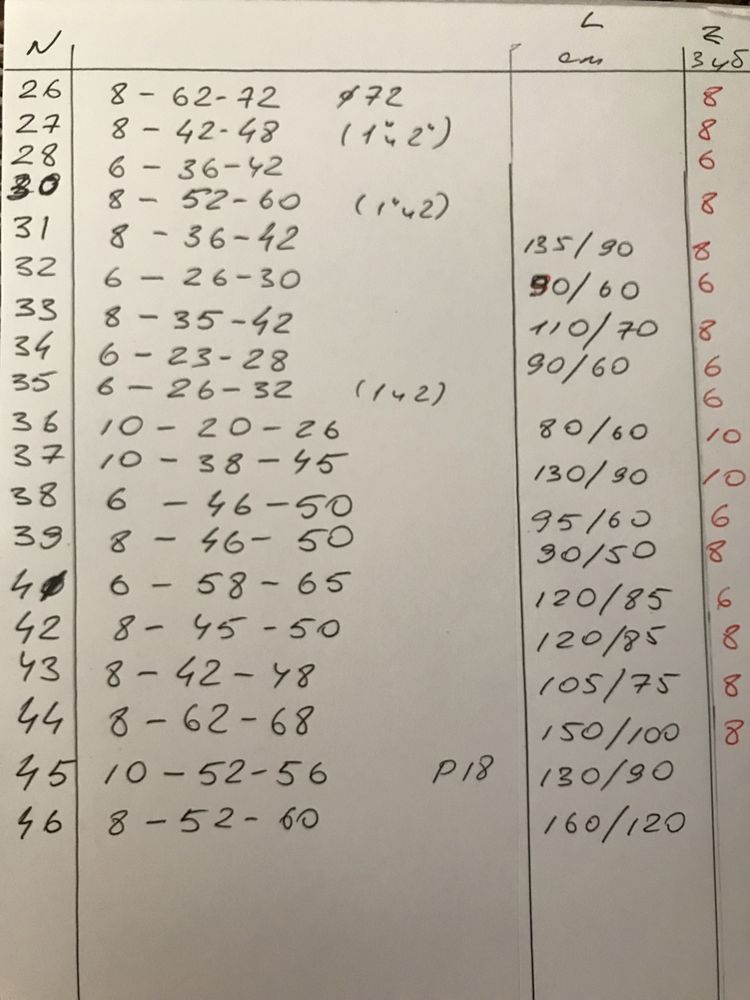 N L Z
см Зуб
26 8 - 62-72 ⌀72 8
27 8 - 42-48 (1и2) 8
28 6 - 36-42 6
30 8 - 52-60 (1и2) 8
31 8 - 36-42 135/90 8
32 6 - 26-30 90/60 6
33 8 - 35-42 110/70 8
34 6 - 23-28 90/60 6
35 6 - 26-32 (1и2) 6
36 10 - 20-26 80/60 10
37 10 - 38-45 130/90 10
38 6 - 46-50 95/60 6
39 8 - 46-50 90/50 8
4 6 - 58-65 120/85 6
42 8 - 45-50 120/85 8
43 8 - 42-48 105/75 8
44 8 - 62-68 150/100 8
45 10 - 52-56 P18 130/90
46 8 - 52-60 160/120